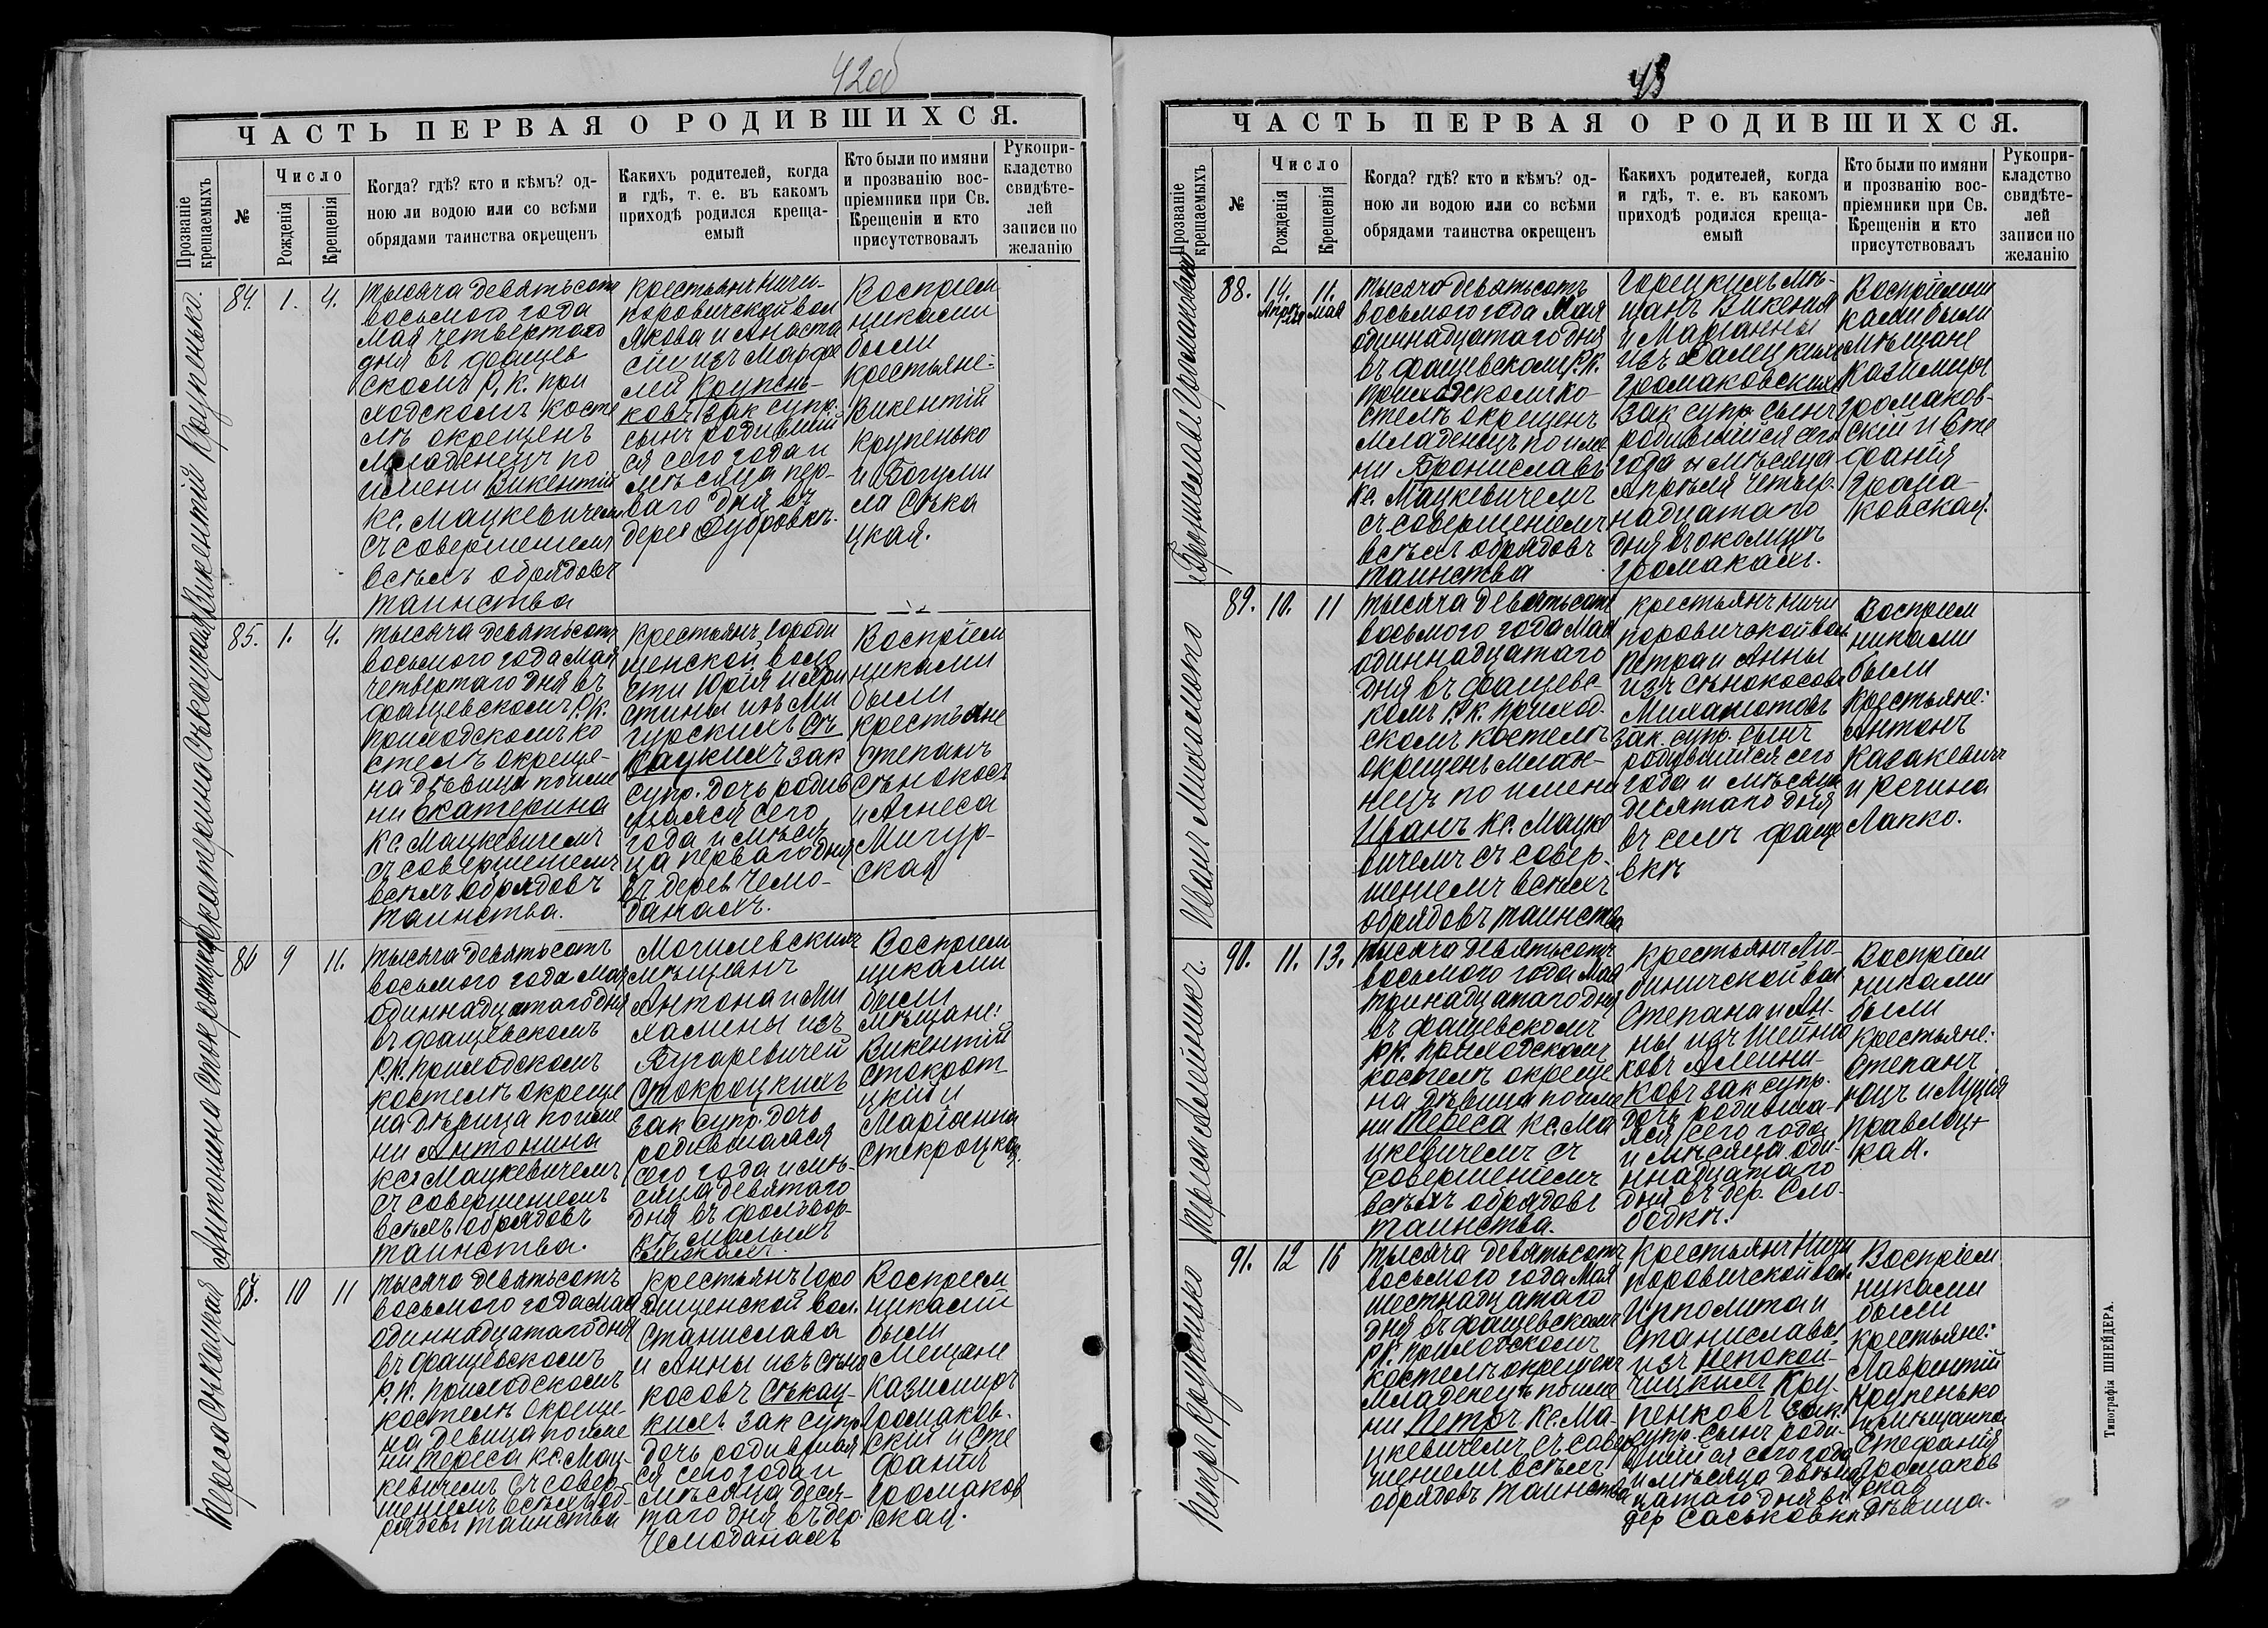 42об
ЧАСТЬ ПЕРВАЯ О РОДИВШИХСЯ.
Прозваніе крещаемыхъ
№
Число
Рожденія
Крещенія
Когда? гдѣ? кто и кѣмъ? од-
ною ли водою или со всѣми
обрядами таинства окрещенъ
Какихъ родителей, когда
и гдѣ, т. е. въ какомъ
приходѣ родился креща-
емый
Кто были по имяни
и прозванію вос-
пріемники при Св.
Крещеніи и кто
присутствовалъ
Рукопри-
кладство
свидѣте-
лей
записи по
желанію
Викентій Крупенько.
84. 1. 4.
Тысяча девятьсотъ
восьмого года
мая четвертаго
дня въ фащев
скомъ Р. К. при
ходскомъ косте
лѣ окрещенъ
младенецъ по
имени Викентій
кс. Мацкевичемъ
съ совершеніемъ
всѣхъ обрядовъ
таинства
Крестьянъ Ничи-
поровичской вол
Якова и Анаста
сіи изъ
Крупень-
ковъ зак супр.
сынъ родившій
ся сего года и
мѣсяца пер-
ваго дня въ
дерев Дубровкѣ.
Воспріем
никами
были
крестьяне:
Викентій
Крупенько
и Богуми
ла Сѣка
цкая.
Екатерина Сѣкацкая
85. 1. 4.
Тысяча девятьсотъ
восьмого года Мая
четвертаго дня въ
фащевскомъ Р. К.
приходскомъ ко
стелѣ окреще-
на дѣвица по име
ни Екатерина
кс. Мацкевичемъ
съ совершеніемъ
всѣхъ обрядовъ
таинства.
Крестьянъ Городи
щенской воло
сти Юрія и Хри
стины изъ Ми
гурскихъ Сѣ
кацкихъ зак
супр. дочь родив
шаяся сего
года и мѣся
ца перваго дня
въ дерев Чемо-
данахъ.
Воспріем
никами
были
крестьяне
Степанъ
Сѣнокосъ
и Агнеса
Мигур-
ская
Антонина Стокроцкая
86 9 11.
Тысяча девятьсотъ
восьмого года Мая
одиннадцатаго дня
въ фащевскомъ
Р. К. приходскомъ
костелѣ окреще
на дѣвица по име
ни Антонина
кс. Мацкевичемъ
съ совершеніемъ
всѣхъ обрядовъ
таинства.
Могилевскихъ
мѣщанъ
Антона и Ми
халины изъ
Стокроцкихъ
зак супр. дочь
родившаяся
сего года и мѣ-
сяца девятаго
дня въ фольвар-
кѣ Малыхъ
Воспріем
никами
были
мѣщане:
Викентій
Стокрот
цкій и
Маріанна
Стокроцкая.
Тереса Сѣкацкая
87. 10 11
Тысяча девятьсотъ
восьмого года мая
одиннадцатаго дня
въ фащевскомъ
Р. К. приходскомъ
костелѣ окреще
на девица по име
ни Тереса кс. Мац-
кевичемъ съ совер-
шеніемъ всѣхъ об-
рядовъ таинства
Крестьянъ Горо
дищенской вол.
Станислава
и Анны изъ Сѣно
косовъ Сѣкац-
кихъ зак супр.
дочь родившая
ся сего года и
мѣсяца деся-
таго дня въ дер.
Чемоданахъ
Воспріем
никами
были
мещане
Казимиръ
Громаков-
скій и Сте
фанія
Громаков
ская.
43
ЧАСТЬ ПЕРВАЯ О РОДИВШИХСЯ.
Прозваніе крещаемыхъ
№
Число
Рожденія
Крещенія
Когда? гдѣ? кто и кѣмъ? од-
ною ли водою или со всѣми
обрядами таинства окрещенъ
Какихъ родителей, когда
и гдѣ, т. е. въ какомъ
приходѣ родился креща-
емый
Кто были по имяни
и прозванію вос-
пріемники при Св.
Крещеніи и кто
присутствовалъ
Рукопри-
кладство
свидѣте-
лей
записи по
желанію
Брониславъ Громаковскій
88. 14. Апрѣля 11. мая
Тысяча девятьсотъ
восьмого года Мая
одиннадцатаго дня
въ фащевскомъ Р. К.
приходскомъ ко-
стелѣ окрещенъ
младенецъ по име
ни Брониславъ
кс. Мацкевичемъ
съ совершеніемъ
всѣхъ обрядовъ
таинства
Горецкихъ мѣ-
щанъ Викентія
и Маріанны
изъ Залецкихъ
Громаковскихъ
зак супр сынъ
родившійся сего
года и мѣсяца
Апрѣля четыр-
надцатаго
дня въ околицѣ
Громакахъ.
Воспріемни
ками были
мѣщане
Казимиръ
Громаков-
скій и Сте
фанія
Грома-
ковская.
Иванъ Михолютко
89. 10. 11
Тысяча девятьсотъ
восьмого года Мая
одиннадцатаго
дня въ фащевс-
комъ Р. К. приход-
скомъ костелѣ
окрещенъ младе-
нецъ по имени
Иванъ кс. Мацке
вичемъ съ совер-
шеніемъ всѣхъ
обрядовъ таинства
Крестьянъ Ничи
поровичской вол.
Петра и Анны
изъ Сѣнокосовъ
зак. супр. сынъ
родившійся сего
года и мѣсяца
десятаго дня
въ селѣ фаще
вкѣ
Воспріем
никами
были
Крестьяне:
Антонъ
Казакевичъ
и Регина
Лапко.
Тереса Алейникъ.
90. 11. 13.
Тысяча девятьсотъ
восьмого года Мая
тринадцатаго дня
въ фащевскомъ
Р. К. приходскомъ
костелѣ окреще
на дѣвица по име
ни Тереса кс. Ма
цкевичемъ съ
совершеніемъ
всѣхъ обрядовъ
таинства.
Крестьянъ Лю-
биничской вол
Степана и Ан-
ны изъ Шейно
ковъ Алейни-
ковъ зак супр.
дочь родивша-
яся сего года
и мѣсяца оди-
ннадцатаго
дня въ дер. Сло-
бодкѣ.
Воспріем
никами
были
Крестьяне:
Степанъ
и Луція
кая.
Петръ Крупенько
91. 12 16
Тысяча девятьсотъ
восьмого года Мая
шестнадцатаго
дня въ фащевскомъ
Р. К. приходскомъ
костелѣ окрещенъ
младенецъ по име
ни Петръ кс. Ма-
цкевичемъ съ совер
шеніемъ всѣхъ
обрядовъ таинства
Крестьянъ Ничи
поровичской вол.
Ипполита и
Станиславы
изъ Непокой-
чицкихъ Кру-
пенковъ зак.
супр. сынъ роди-
вшійся сего года
и мѣсяца двѣнад
цатаго дня въ
дер Саськовкѣ
Воспріем
никами
были
крестьяне:
Лаврентій
Крупенько
и мѣщанка
Стефанія
Громаков
ская
дѣвица.
Типографія ШНЕЙДЕРА.